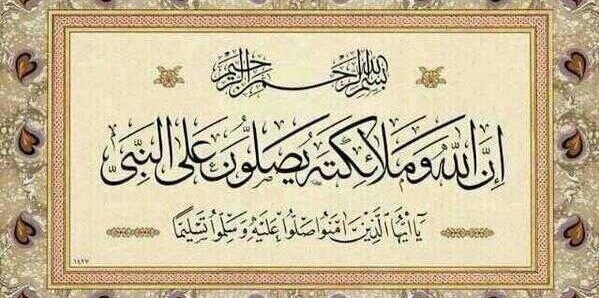 بسم الله الرحمن الرحيم
إنّ الله وملائكته يصلّون على النّبيّ
يا أيّها الّذين آمنوا صلّوا عليه وسلّموا تسليمًا